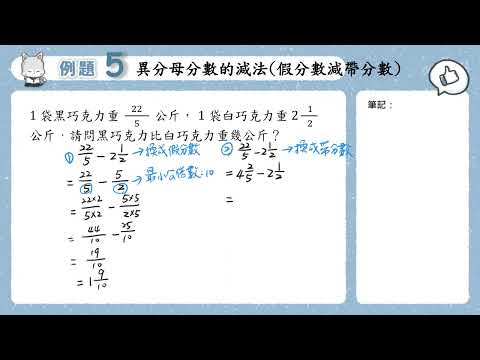 例題 5 異分母分數的減法(假分數減帶分數)
1 袋黑巧克力重 22/5 公斤，1 袋白巧克力重 2 1/2
公斤．請問黑巧克力比白巧克力重幾公斤？
筆記：
① 22/5 - 2 1/2 → 換成假分數
= 22/5 - 5/2 → 最小公倍數:10
= 22×2/5×2 - 5×5/2×5
= 44/10 - 25/10
= 19/10
= 1 9/10
② 22/5 - 2 1/2 → 換成帶分數
= 4 2/5 - 2 1/2
=